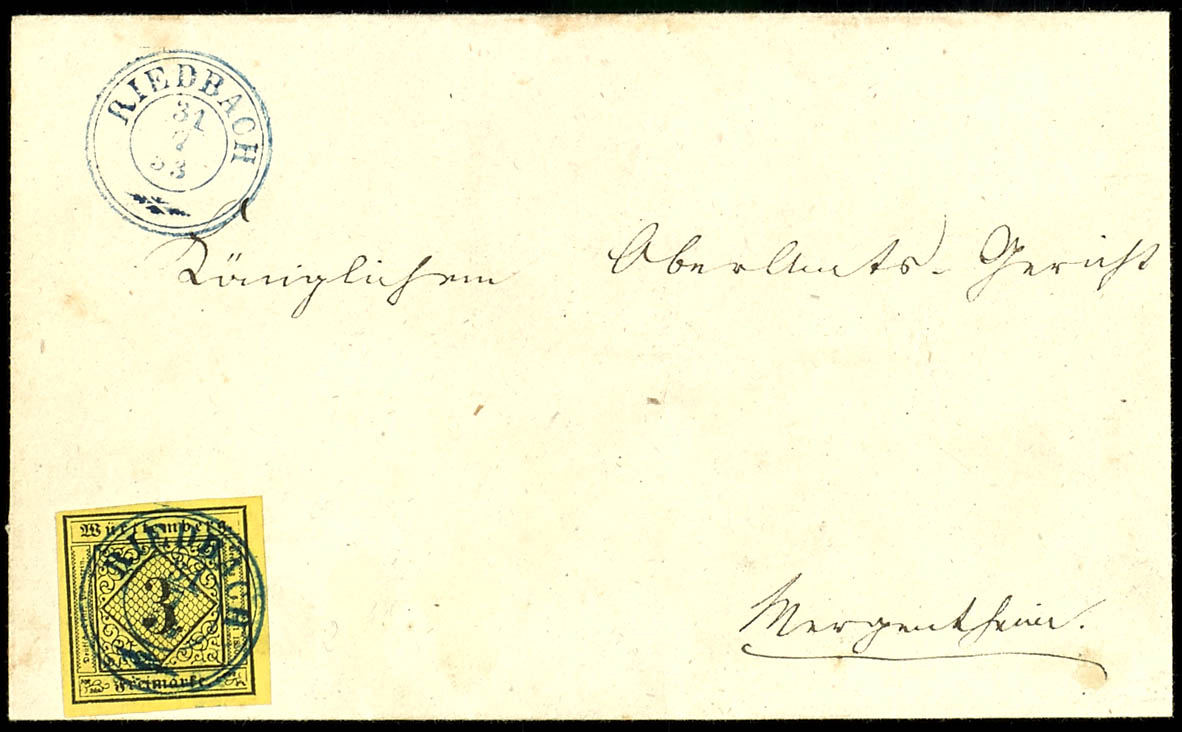 RIEDBACH
31
7
53
Königlichem OberAmts-Gericht
Mergentheim.
Württemberg.
RIEDBACH
31
3
Freimarke